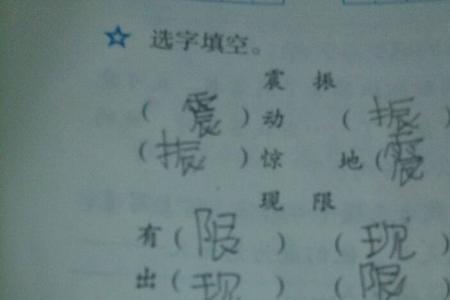 ☆ 选字填空。
震 振
(震)动 (振
(振)惊 地(震
现 限
有(限) (现)
出(现 (限